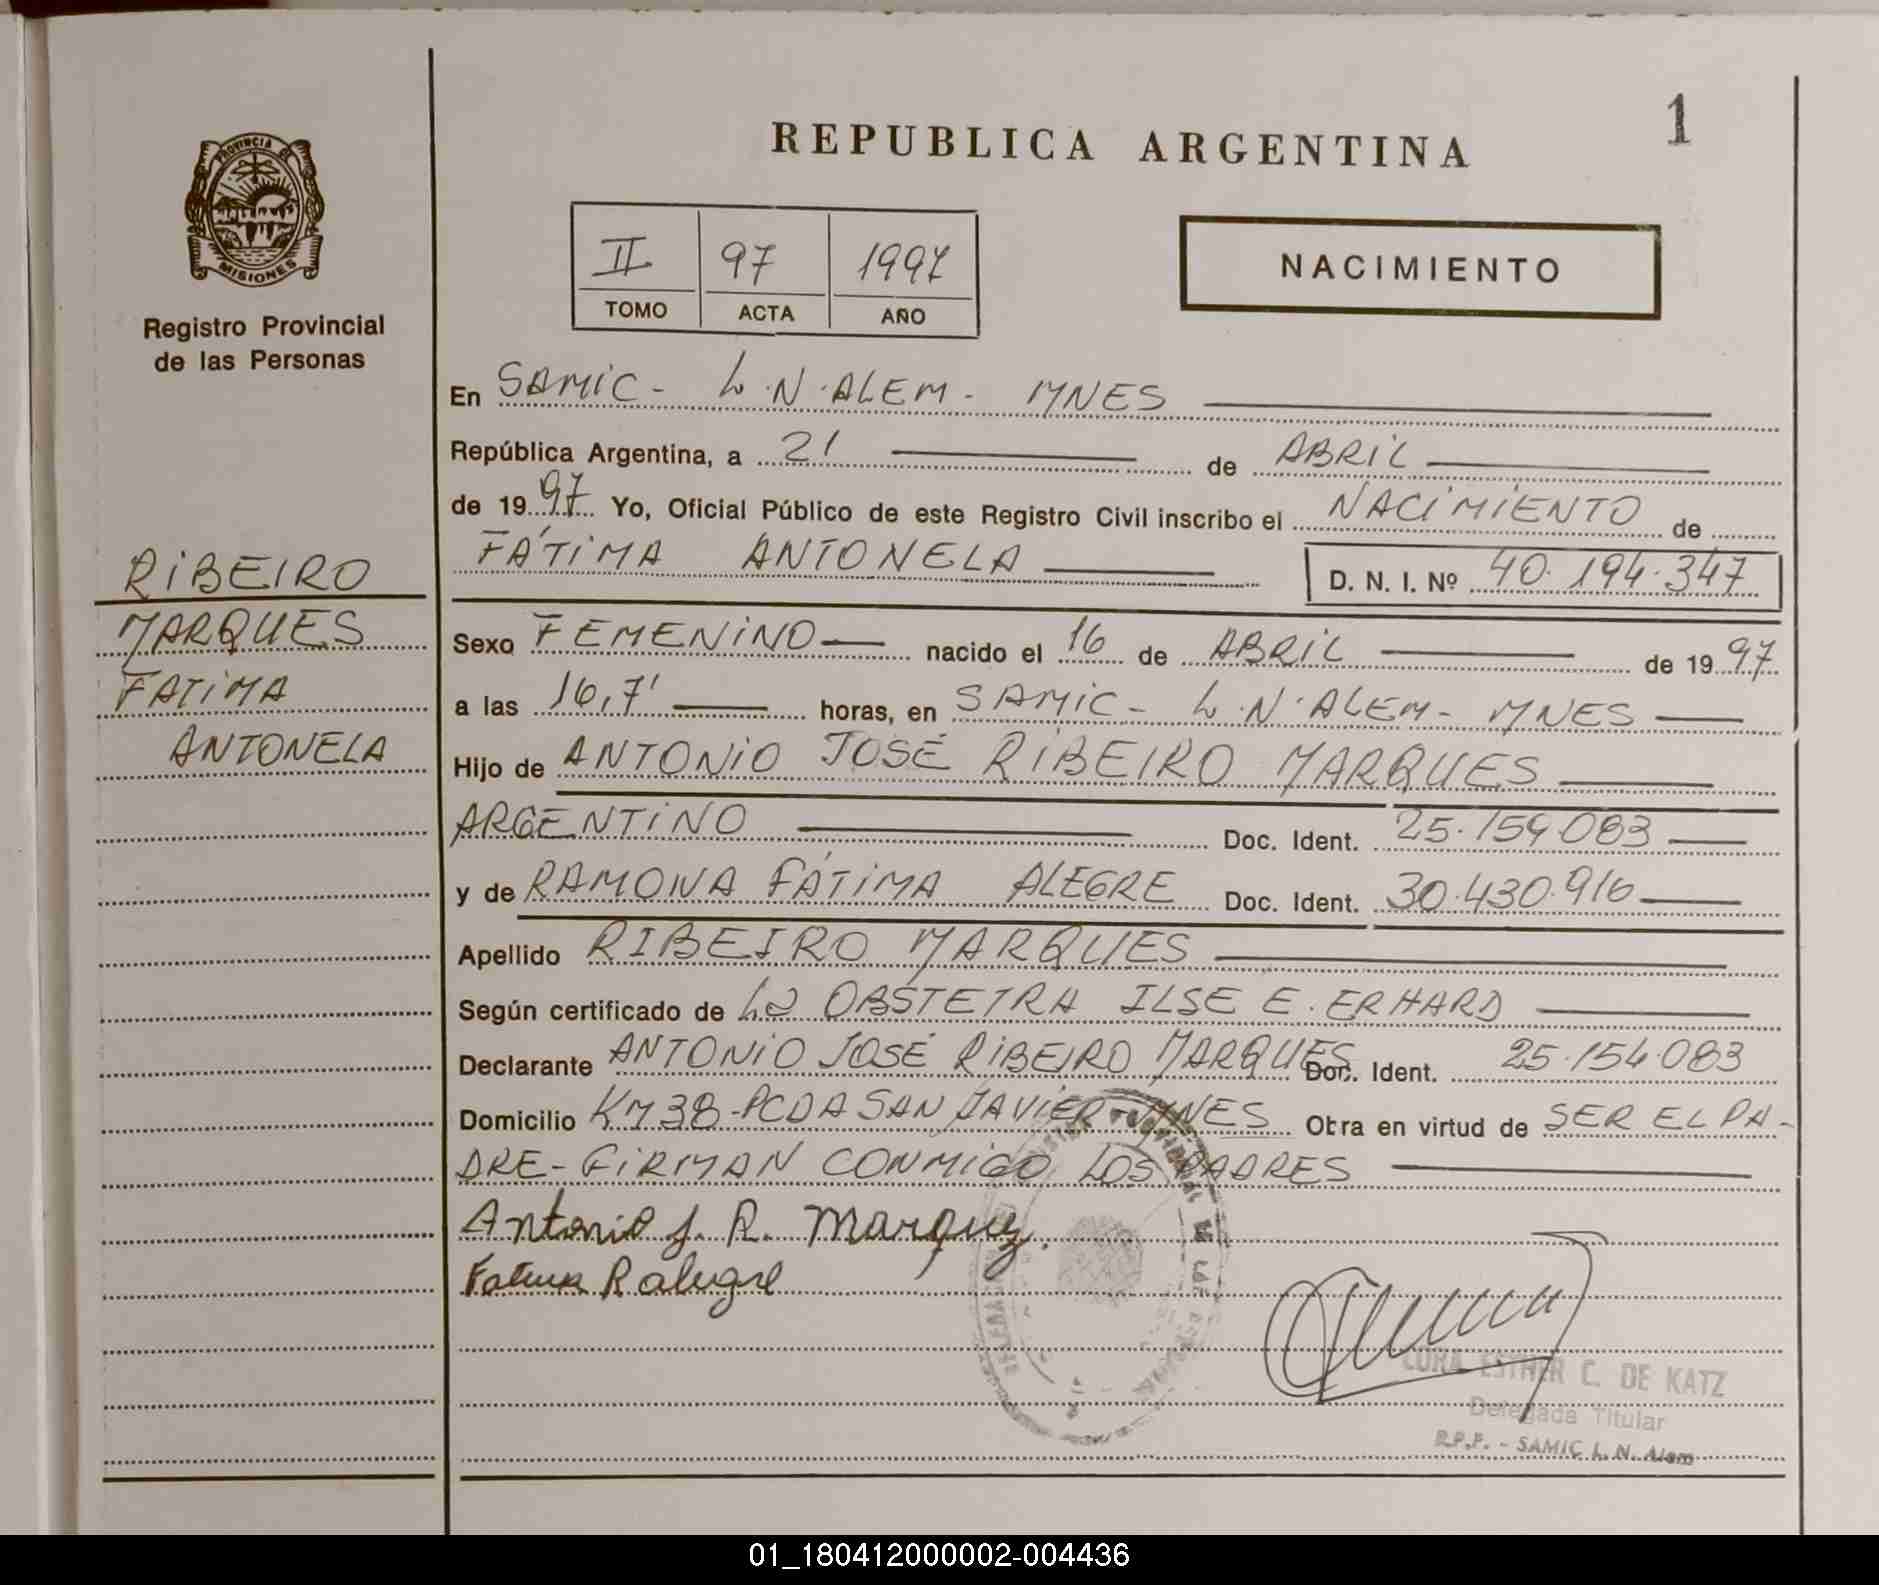 1
REPUBLICA ARGENTINA
PROVINCIA DE
MISIONES
Registro Provincial
de las Personas
II 97 1997
TOMO ACTA AÑO
NACIMIENTO
En SAMIC - L.N.ALEM - MNES
República Argentina, a 21 de ABRIL
de 1997 Yo, Oficial Público de este Registro Civil inscribo el NACIMIENTO de
FÁTIMA ANTONELA D. N. I. Nº 40.194.347
RIBEIRO
MARQUES
FATIMA
ANTONELA
Sexo FEMENINO nacido el 16 de ABRIL de 1997
a las 16,7' horas, en SAMIC - L.N.ALEM - MNES
Hijo de ANTONIO JOSÉ RIBEIRO MARQUES
ARGENTINO Doc. Ident. 25.154.083
y de RAMONA FÁTIMA ALEGRE Doc. Ident. 30.430.916
Apellido RIBEIRO MARQUES
Según certificado de La OBSTETRA ILSE E. ERHARD
Declarante ANTONIO JOSÉ RIBEIRO MARQUES Doc. Ident. 25.154.083
Domicilio KM38-PCDA SAN JAVIER-MNES Obra en virtud de SER EL PA-
DRE - FIRMAN CONMIGO LOS PADRES
Antonio J. R. Marquez.
Fatima R alegre
CORA ESTHER C. DE KATZ
Delegada Titular
R.P.P. - SAMIC L. N. Alem
01_180412000002-004436